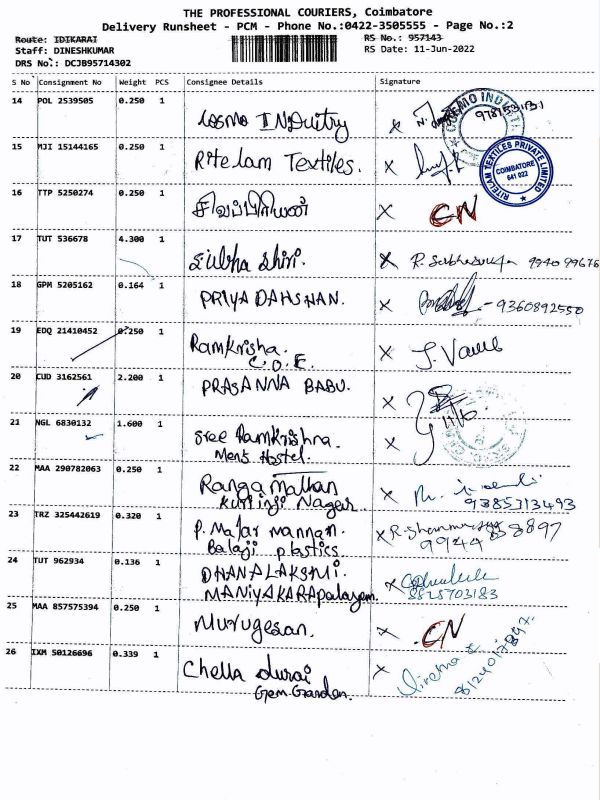 THE PROFESSIONAL COURIERS, Coimbatore
Delivery Runsheet - PCM - Phone No.:0422-3505555 - Page No.:2
Route: IDIKARAI
RS No.: 957143
Staff: DINESHKUMAR
RS Date: 11-Jun-2022
DRS No.: DCJB95714302
S No Consignment No Weight PCS Consignee Details Signature
14 POL 2539505 0.250 1 Cosmo INDuitry x
15 MJI 15144165 0.250 1 Ritelam Textiles. x
RITELAM TEXTILES PRIVATE LIMITED
COIMBATORE
641 022
16 TTP 5250274 0.250 1 சிவப்பிரியன் x CN
17 TUT 536678 4.300 1 Subha Shiri. x 994099676
18 GPM 5205162 0.164 1 PRIYA DAHSHAN. x - 9360892550
19 EDQ 21410452 0.250 1 Ramkrisha. x
C.O.E.
20 CUD 3162561 2.200 1 PRASANNA BABU. x
11/6.
21 NGL 6830132 1.600 1 Sree Ramkrishna. x
Mens Hostel.
22 MAA 290782063 0.250 1 Ranga Nathan x
Kurinji Nagar. 9385313493
23 TRZ 325442619 0.320 1 P. Malar mannan. x
Balaji plastics
24 TUT 962934 0.136 1 DHANALAKSMI. x
MANIYAKARApalayam. 8825703183
25 MAA 857575394 0.250 1 Murugesan. x .CN
26 IXM 50126696 0.339 1 Chella durai x
Gem Garden.